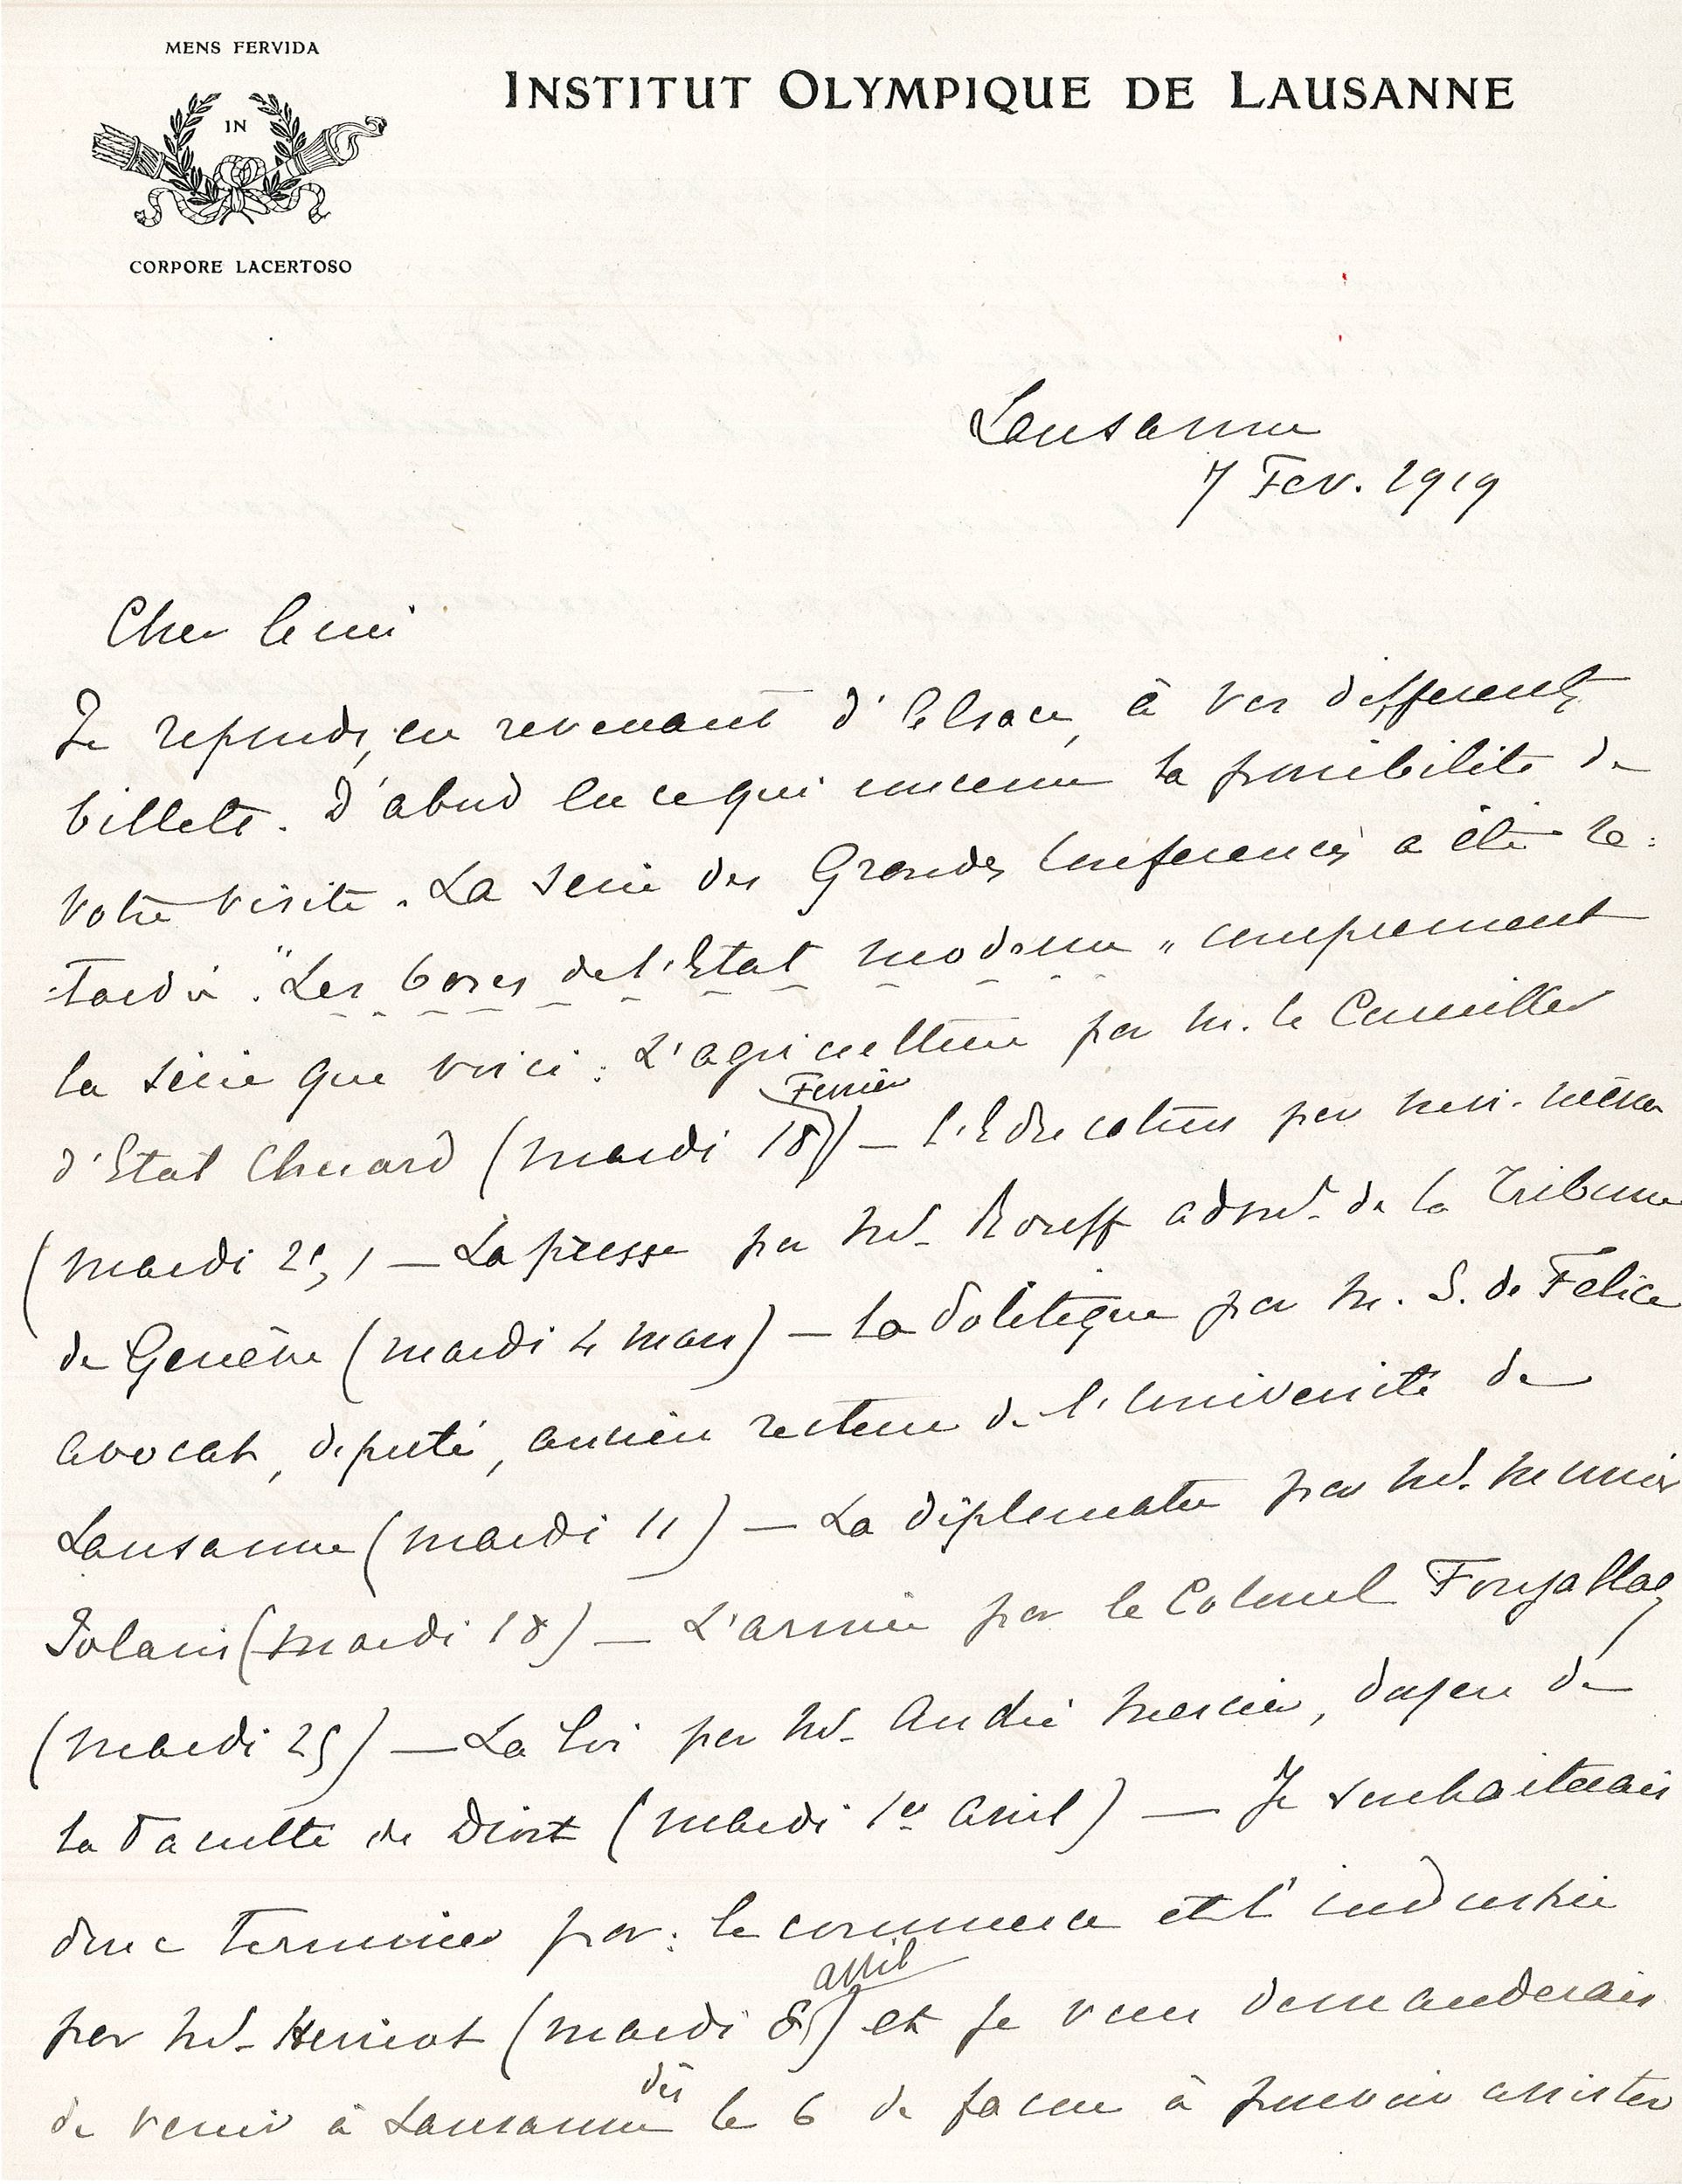 MENS FERVIDA
IN
CORPORE LACERTOSO
INSTITUT OLYMPIQUE DE LAUSANNE
Lausanne
7 Fev. 1919
Cher ami
Je reponds, en revenant d'Alsace, à vos differents
billets. D'abord en ce qui concerne la possibilite de
votre visite. La serie des Grandes Conferences a été re=
=tardée. "Les bases de l'Etat moderne" comprennent
la série que voici : L'agriculture par M. le Conseiller
d'Etat Chuard (mardi 18 Fevrier) — l'Education par moi-même
(mardi 25) — La presse par Mr. Rouff admr. de la Tribune
de Genève (mardi 4 mars) — la Politique par M. S. de Felice
avocat, deputé, ancien recteur de l'Université de
Lausanne (mardi 11) — La diplomatie par Mr.
Politis (mardi 18) — L'armée par le Colonel Fonjallaz
(mardi 25) — La loi par Mr. André Mercier, doyen de
la Faculté de Droit (mardi 1er avril) — Je souhaiterais
donc terminer par : le commerce et l'industrie
par Mr. Herriot (mardi 8 avril) et je vous demanderais
de venir à Lausanne dès le 6 de facon à pouvoir assister